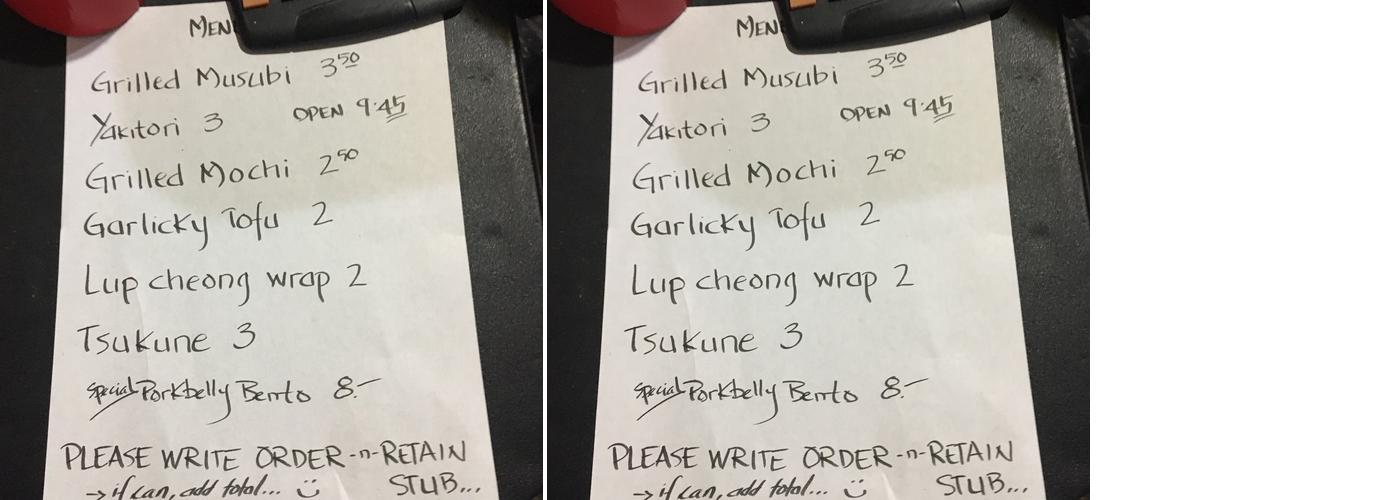 MEN
Grilled Musubi 3.50
Yakitori 3 OPEN 9:45
Grilled Mochi 2.50
Garlicky Tofu 2
Lup cheong wrap 2
Tsukune 3
Special Porkbelly Bento 8.-
PLEASE WRITE ORDER -n- RETAIN
→ if can, add total... STUB...
MEN
Grilled Musubi 3.50
Yakitori 3 OPEN 9:45
Grilled Mochi 2.50
Garlicky Tofu 2
Lup cheong wrap 2
Tsukune 3
Special Porkbelly Bento 8.-
PLEASE WRITE ORDER -n- RETAIN
→ if can, add total... STUB...